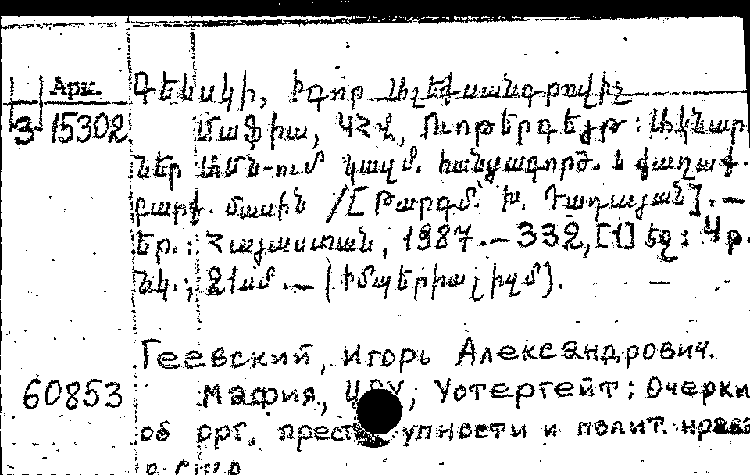 Арм. Գեևսկի, Իգոր Ալեքսանդրովիչ
3-15302 Մաֆիա, ԿՀՎ, Ուոթերգեյթ: Ակնար
ներ ԱՄՆ-ում կազմ. հանցագործ. և քաղաք.
բարք. մասին /[Թարգմ.՝ Խ. Դաղայան]. —
Եր.: Հայաստան, 1987.—332,[1] էջ: 4 թ.
նկ.; 21սմ. — (Իմպերիալիզմ).
Геевский, Игорь Александрович.
60853 Мафия, ЦРУ, Уотергейт: Очерки
об орг. преступности и полит. нрава
в США